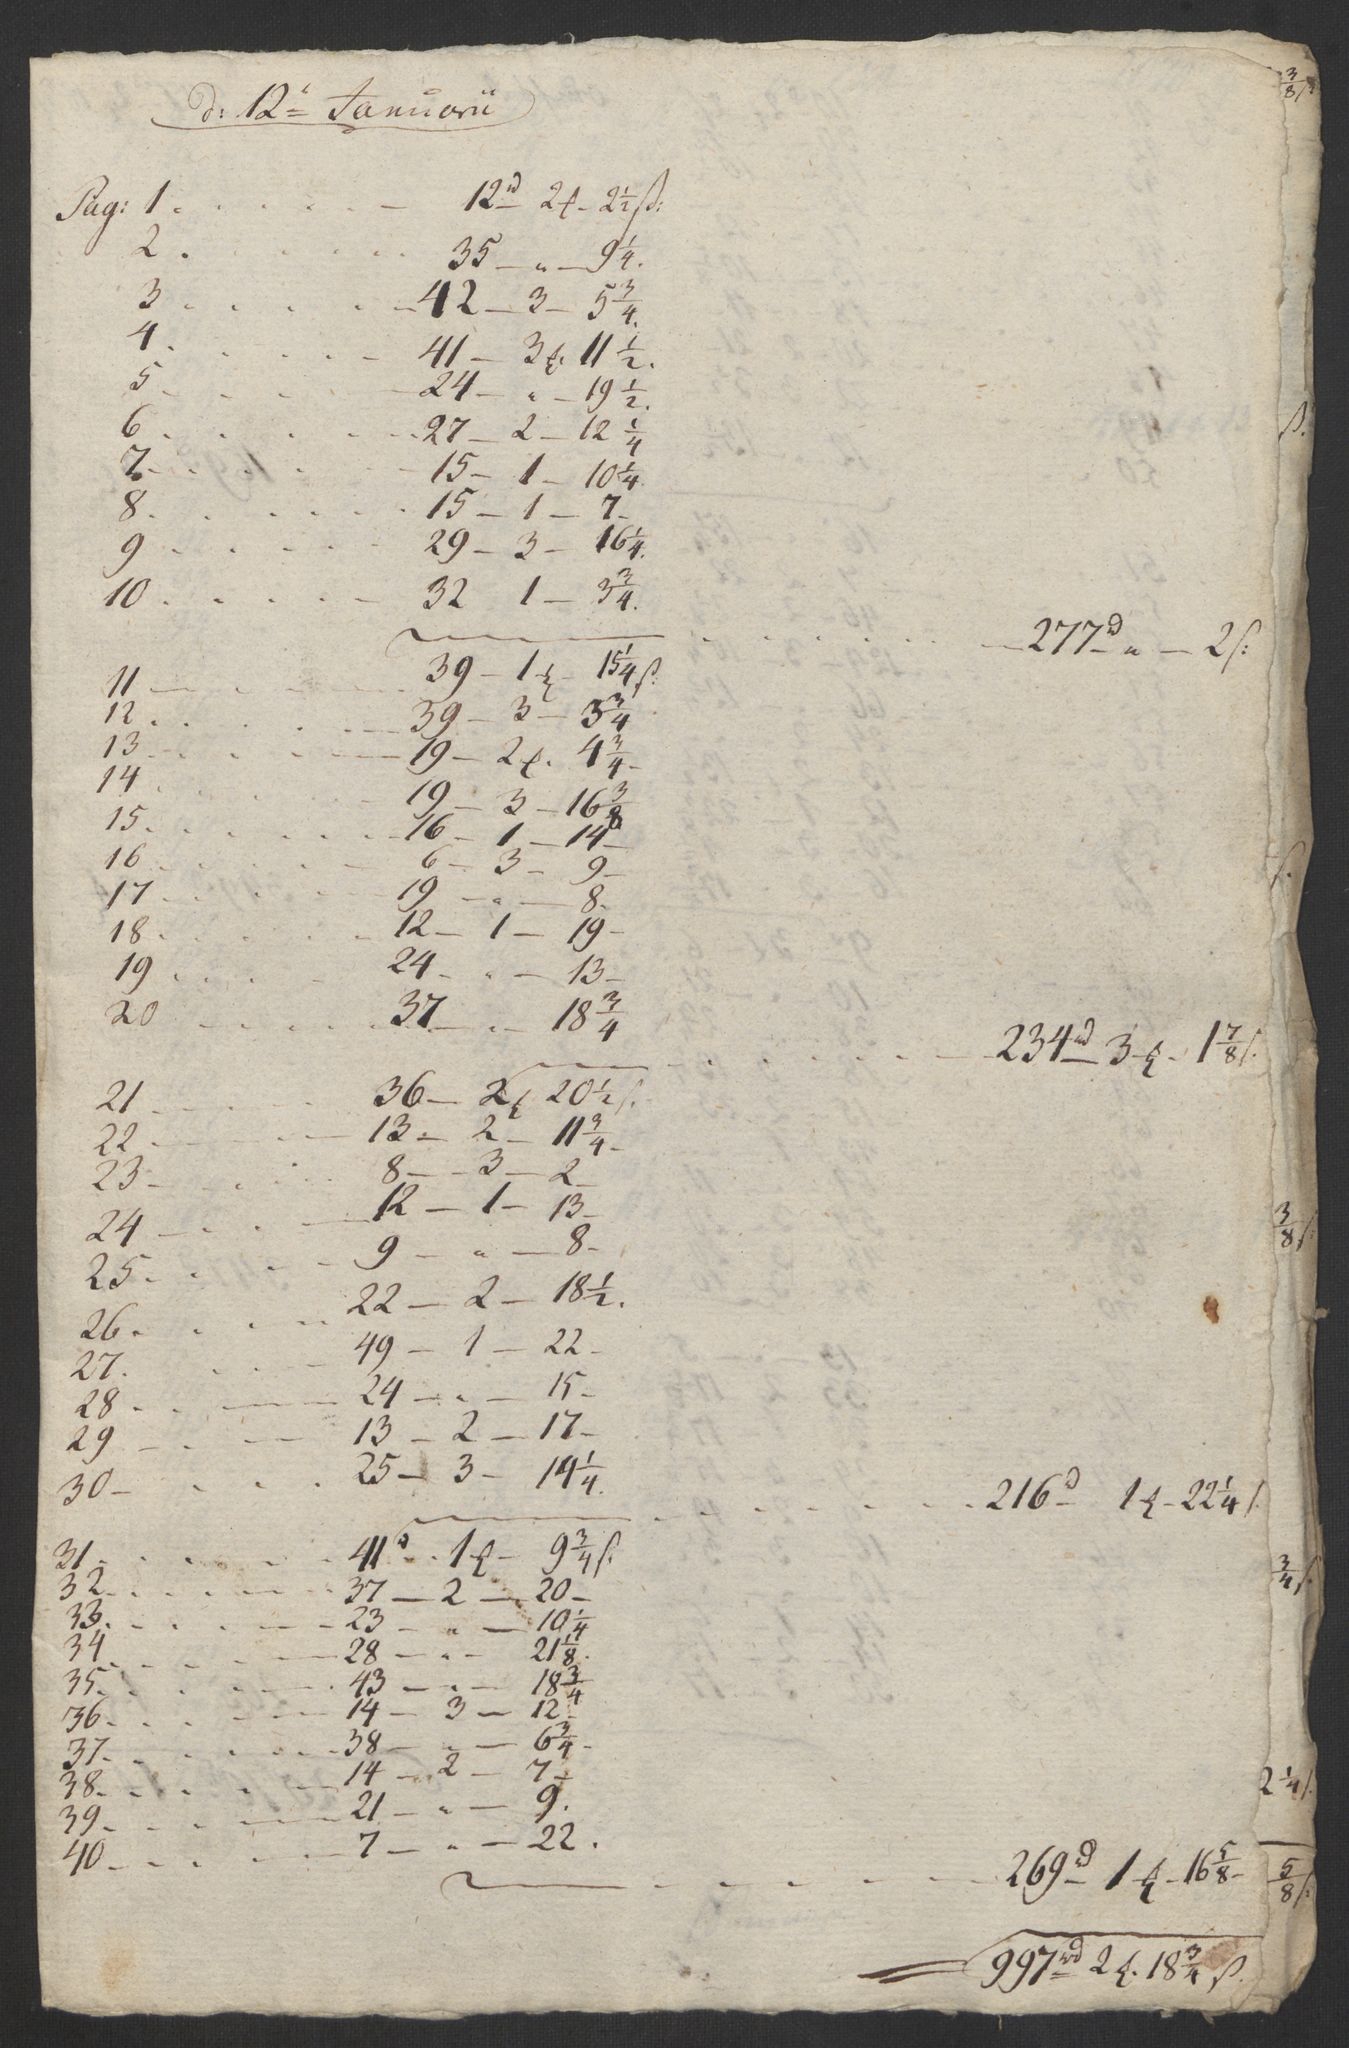 d: 12te Januarii
Pag: 1 12rd 2ʄ 2½ß:
2 35 — „ — 9¼.
3 42 — 3 — 5¾.
4 41 — 3ʄ. 11½.
5 24 — „ — 19½.
6 27 — 2 — 12¼
7 15 — 1 — 10¼.
8 15 — 1 — 7 —
9 29 — 3 — 16¼.
10 32 1 — 3¾.
277rd — „ — 2ß:
11 39 — 1ʄ — 15¼ß.
12 39 — 3 — 3¾
13 19 — 2ʄ. 4¾ —
14 19 — 3 — 16⅜
15 16 — 1 — 14 —
16 6 — 3 — 9 —
17 19 — „ — 8.
18 12 — 1 — 19 —
19 24 — „ — 13 —
20 37 — „ — 18¾
234rd — 3ʄ — 1⅞ß.
21 36 — 2ʄ 20½ß.
22 13 — 2 — 11¾ —
23 8 — 3 — 2 —
24 12 — 1 — 13 —
25 9 — „ — 8 —
26 22 — 2 — 18½.
27 49 — 1 — 22 —
28 24 — „ — 15 —
29 13 — 2 — 17 —
30 25 — 3 — 14¼.
216rd — 1ʄ — 22¼ß.
31 41rd 1ʄ — 9¾ß.
32 37 — 2 — 20 —
33 23 — „ — 10¼
34 28 — „ — 21⅛.
35 43 — „ — 18¾
36 14 — 3 — 12 —
37 38 — „ — 6¾ —
38 14 — 2 — 7 —
39 21 — „ — 9.
40 7 — „ — 22.
269rd — 1ʄ — 16⅝ —
997rd 2ʄ. 18¾ß.
⅜ß.
ß.
ß.
⅜ß.
¾ß.
2¼ß.
⅝ß.